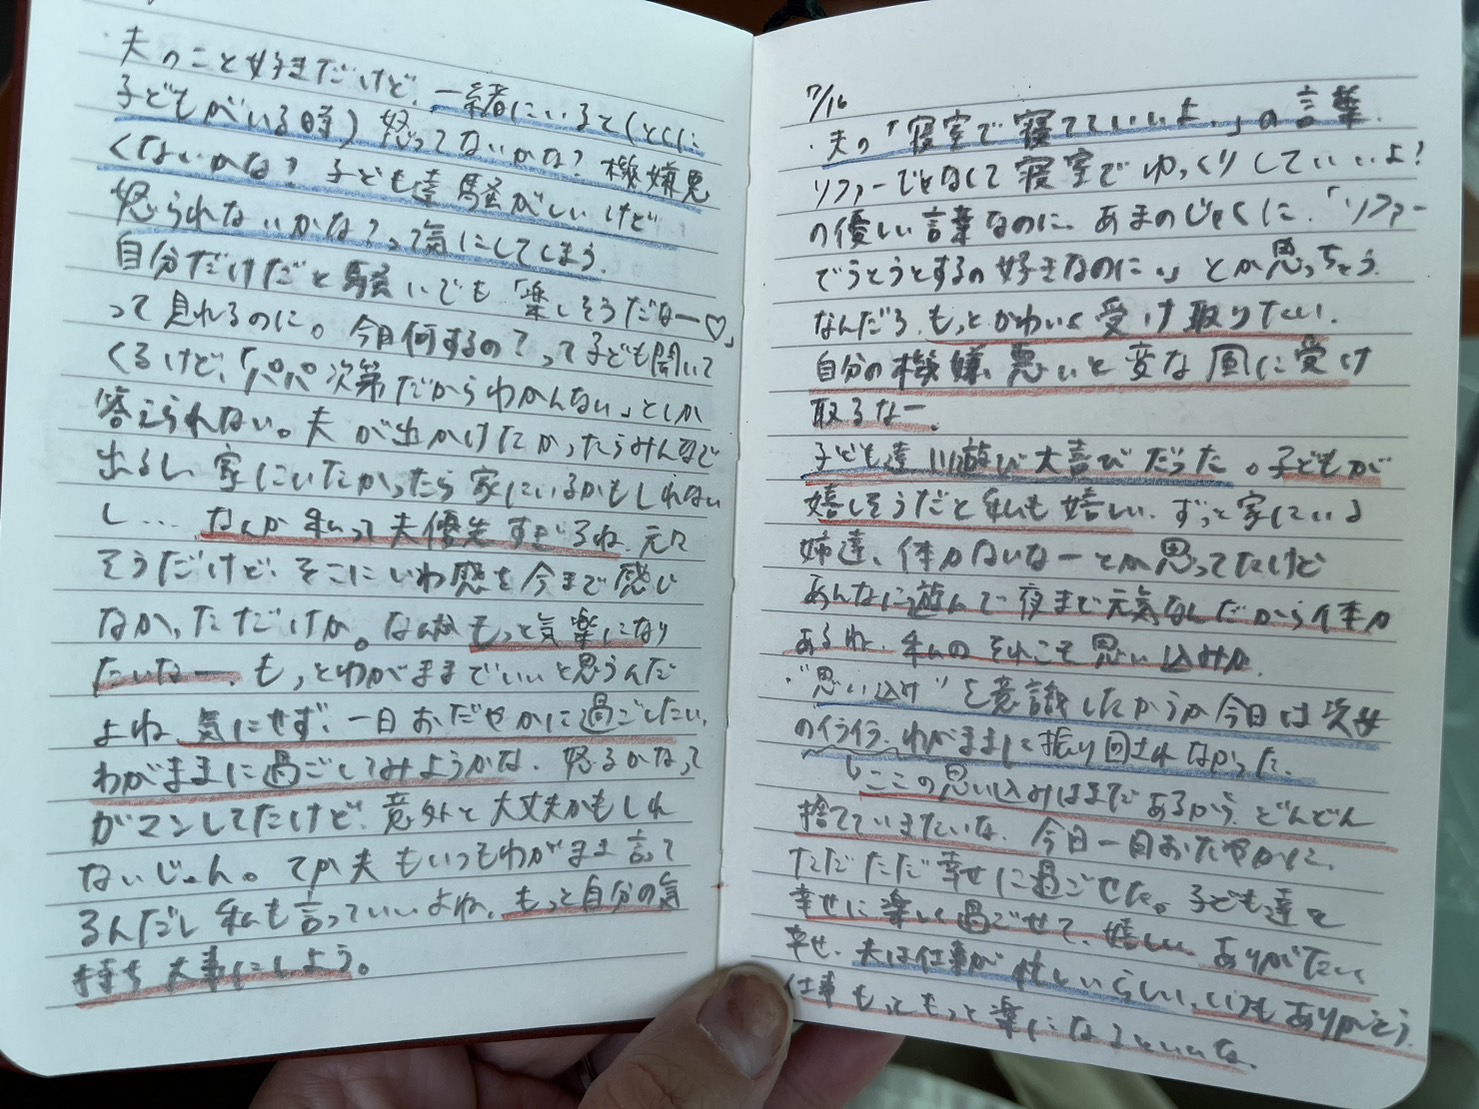 ・夫のこと好きだけど、一緒にいると(とくに
子どもがいる時)怒ってないかな?機嫌悪
くないかな?子ども達騒がしいけど
怒られないかな?って気にしてしまう。
自分だけだと騒いでも「楽しそうだなー♡」
って見れるのに。今日何するの?って子ども聞いて
くるけど、「パパ次第だからわかんない」としか
答えられない。夫が出かけたかったらみんなで
出るし、家にいたかったら家にいるかもしれない
し... なんか私って夫優先すぎるね、元々
そうだけど、そこにいわ感を今まで感じ
なかっただけか。なんか もっと気楽になり
たいなー、もっとわがままでいいと思うんだ
よね、気にせず、一日おだやかに過ごしたい、
わがままに過ごしてみようかな、怒るかなって
ガマンしてたけど、意外と大丈夫かもしれ
ないじゃん。てか夫もいつもわがまま言って
るんだし私も言っていいよね、もっと自分の気
持ち大事にしよう。
7/16
・夫の「寝室で寝てていいよ。」の言葉、
ソファーでなくて寝室でゆっくりしていいよ!
の優しい言葉なのに、あまのじゃくに、「ソファー
でうとうとするの好きなのに。」とか思っちゃう
なんだろ、もっとかわいく受け取りたい。
自分の機嫌悪いと変な風に受け
取るなー。
子ども達川遊び大喜びだった。子どもが
嬉しそうだと私も嬉しい、ずっと家にいる
姉達、体力ないなーとか思ってたけど
あんなに遊んで夜まで元気なんだから体力
あるわ、私のそれこそ思い込みか。
・"思い込み"を意識したからか今日は次女
のイライラ、わがままに振り回されなかった。
↳ここの思い込みはまだあるから、どんどん
捨てていきたいな、今日一日おだやかに、
ただただ幸せに過ごせた。子ども達と
幸せに楽しく過ごせて、嬉しい、ありがたい
幸せ、夫は仕事が忙しいらしい、いつもありがとう。
仕事もっともっと楽になるといいな、